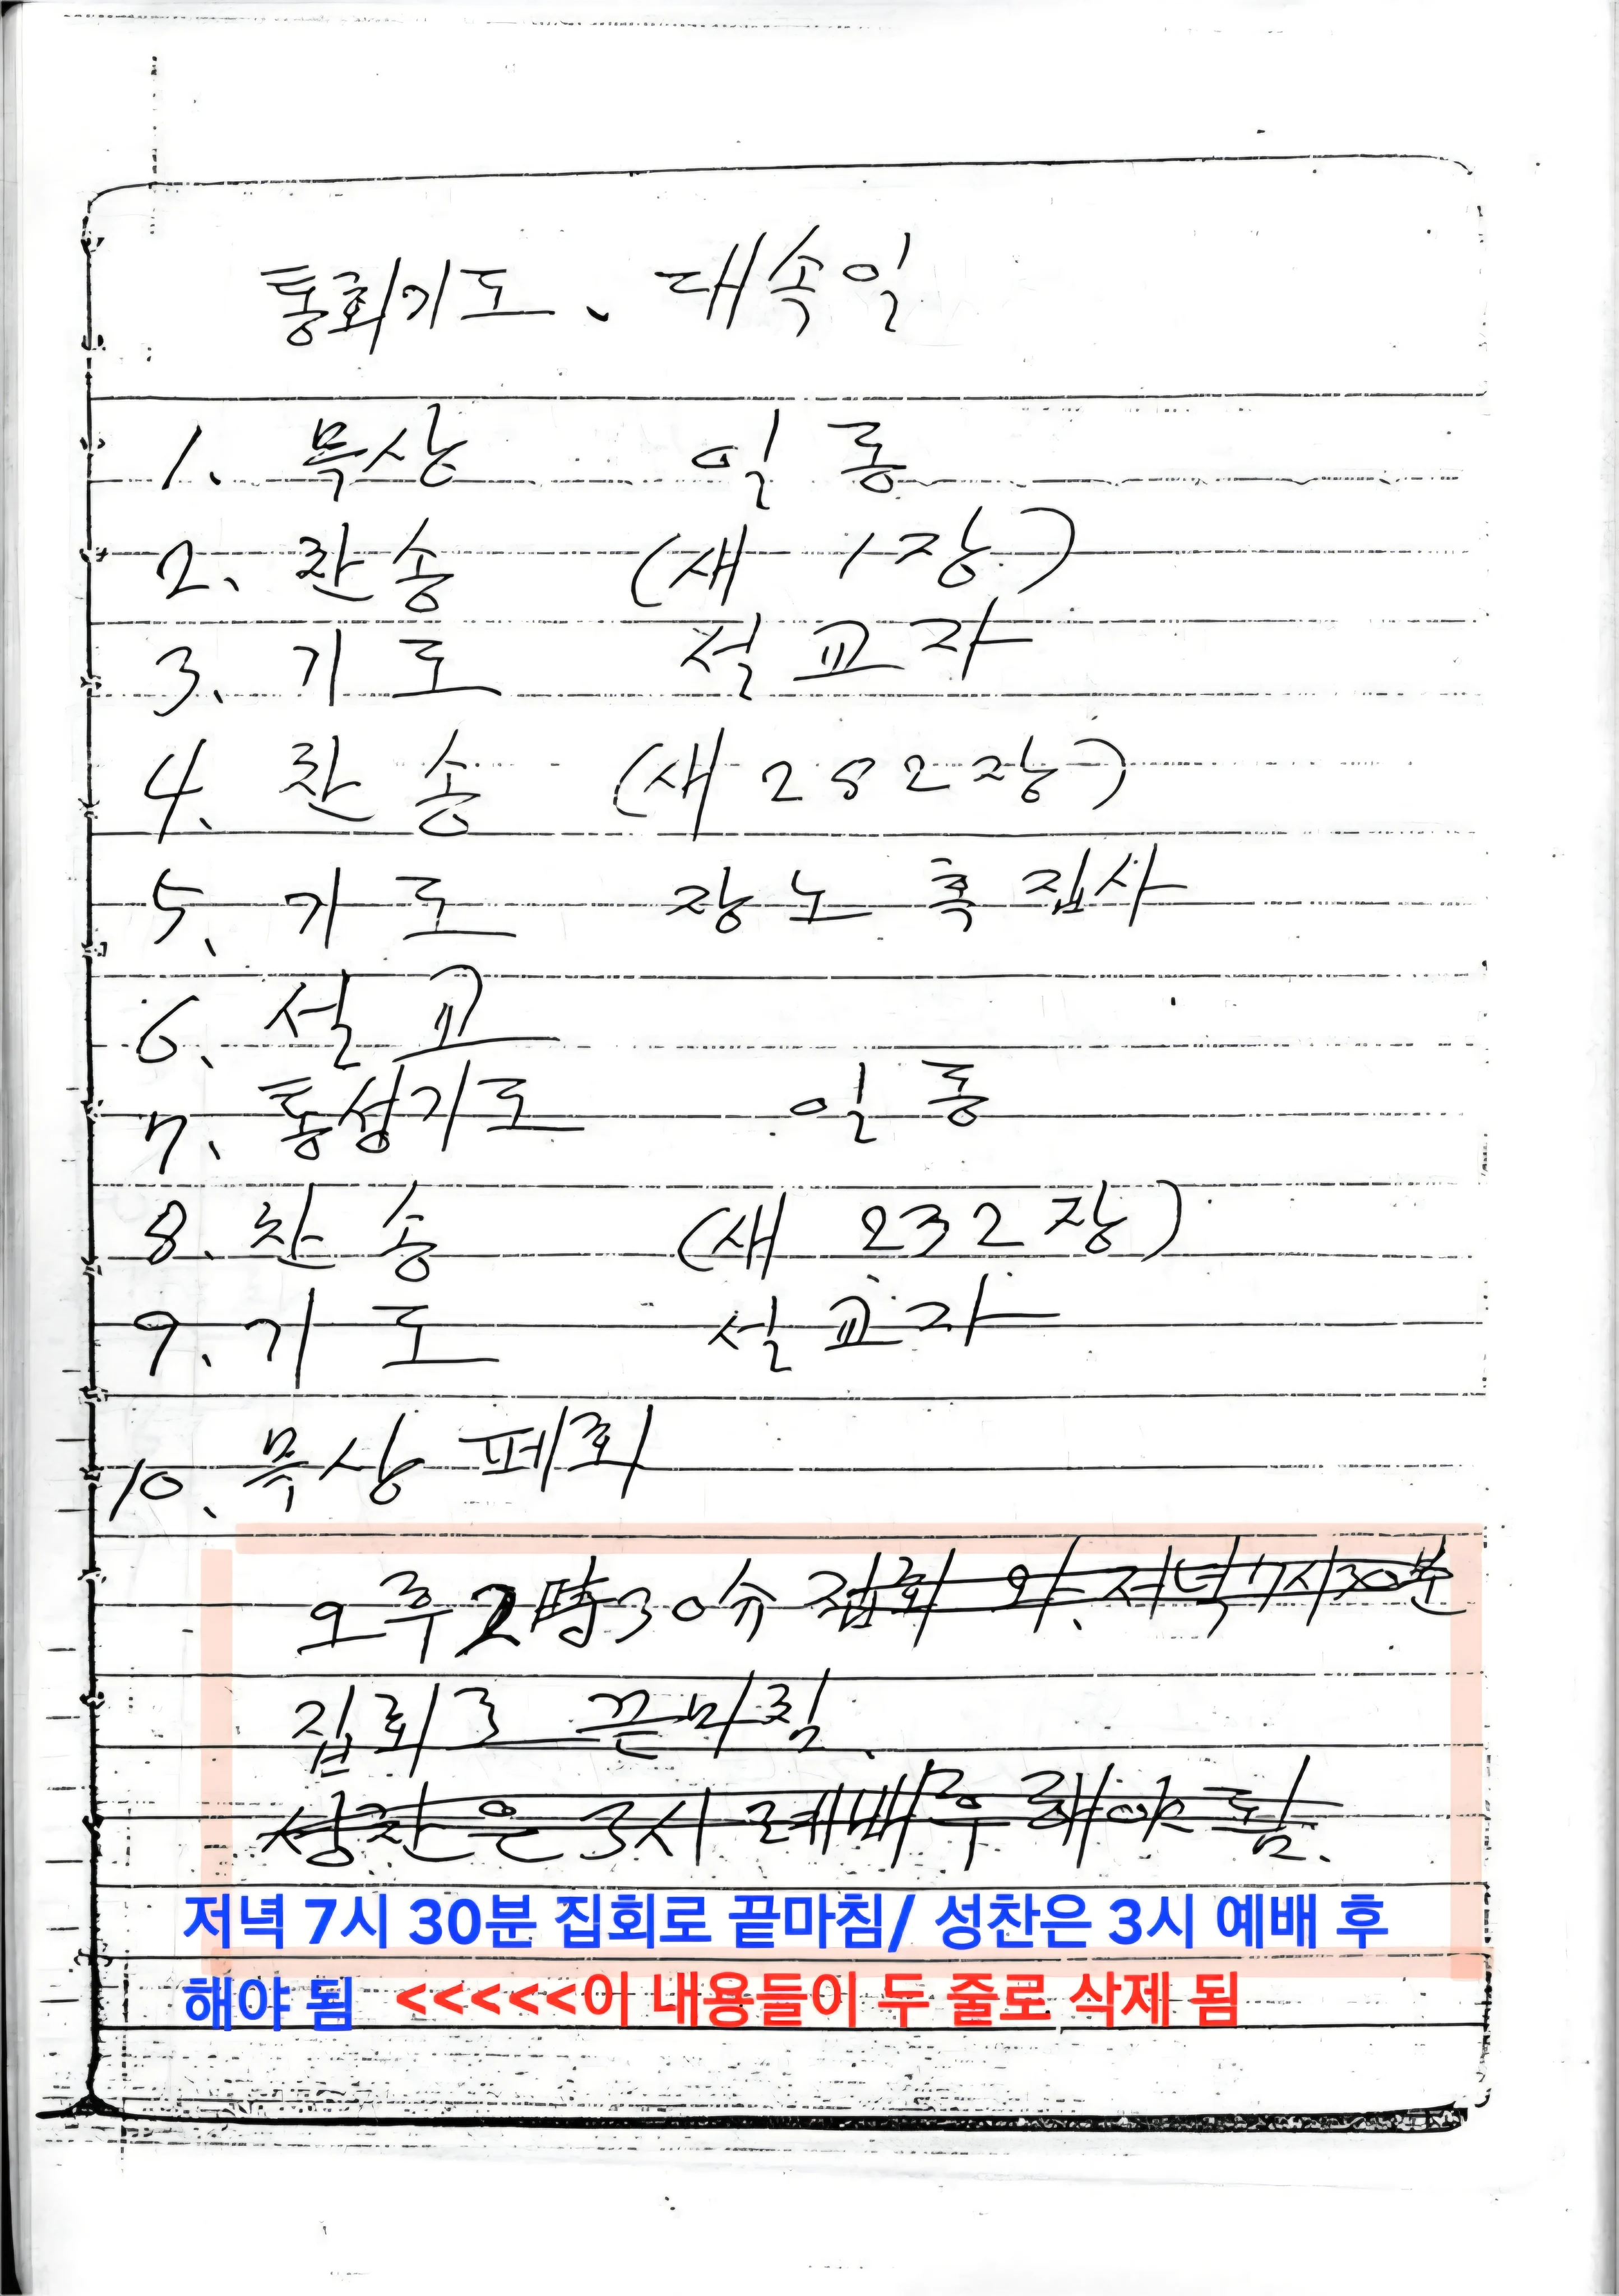 통회기도、대속일
1. 묵상 일동
2. 찬송 (새 1장)
3. 기도 설교자
4. 찬송 (새 282장)
5. 기도 장노 혹 집사
6. 설교
7. 통성기도 일동
8. 찬송 (새 232장)
9. 기도 설교자
10. 묵상 폐회
오후 2時30分 집회와 저녁 7시30분
집회로 끝마침
성찬은 3시 예배후 해야 됨.
저녁 7시 30분 집회로 끝마침/ 성찬은 3시 예배 후
해야 됨 <<<<<이 내용들이 두 줄로 삭제 됨